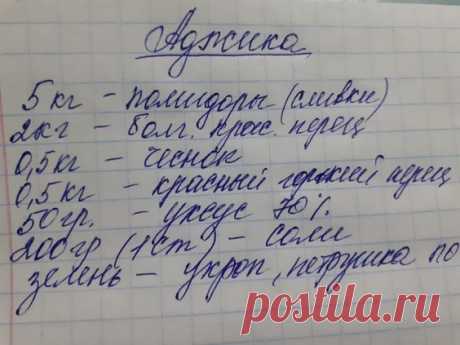 Аджика
5кг – помидоры (сливки)
2кг – болг. крас. перец
0,5кг – чеснок
0,5кг – красный горький перец
50гр. – уксус 70%.
200гр (1 ст) – соли
зелень – укроп, петрушка по
postila.ru